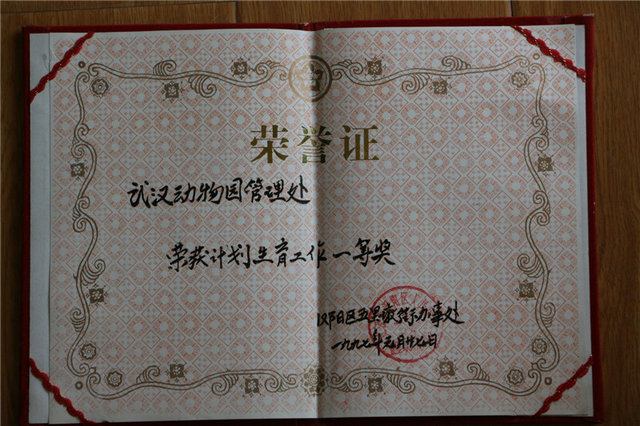 荣誉证
武汉动物园管理处
荣获计划生育工作一等奖
汉阳区五里墩街办事处
一九九七年元月廿七日